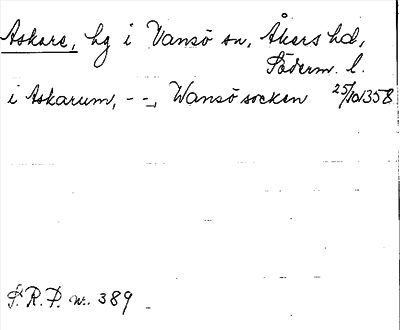 Askare, hg i Vansö sn, Åkers hd,
Söderm. l.
i Askarum, - -, Wansö socken 25/10 1358
S.R.P. nr. 389